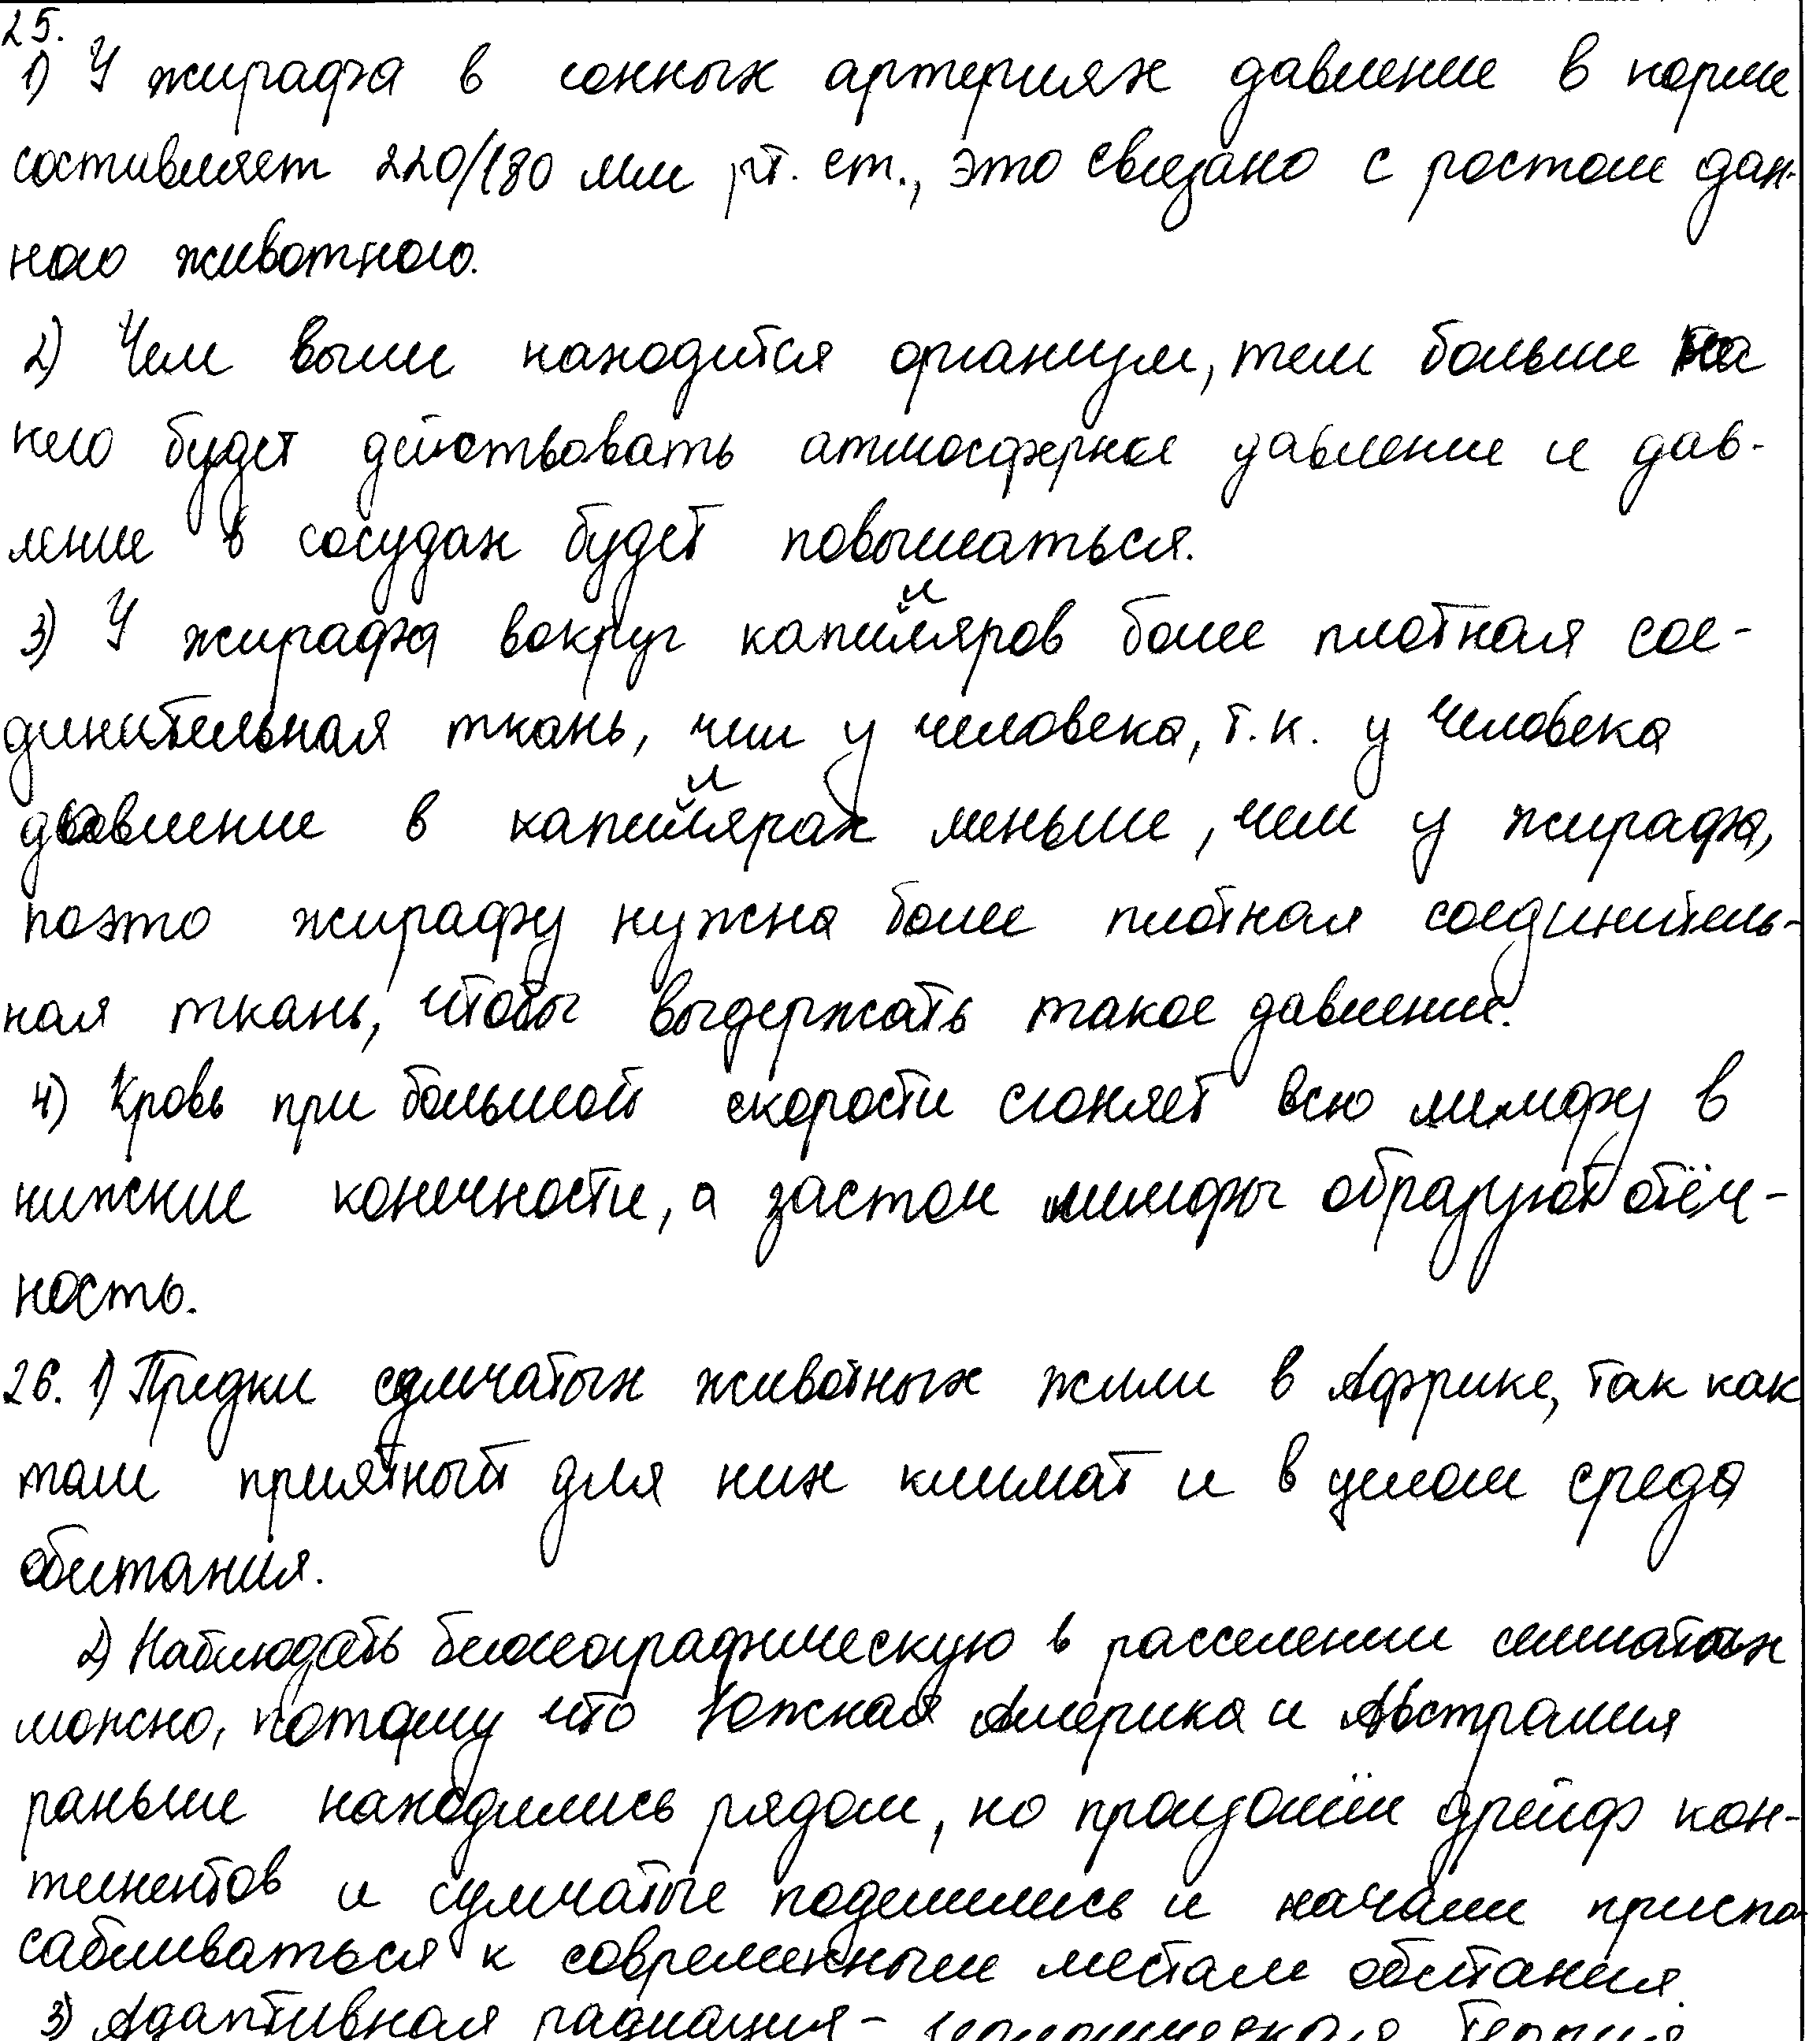 25.
1) У жирафа в сонных артериях давление в норме
составляет 220/180 мм рт. ст., это связано с ростом дан-
ного животного.
2) Чем выше находится организм, тем больше на
него будет действовать атмосферное давление и дав-
ление в сосудах будет повышаться.
3) У жирафа вокруг капилляров более плотная сое-
динительная ткань, чем у человека, т.к. у человека
давление в капиллярах меньше, чем у жирафа,
поэто жирафу нужна более плотная соединитель-
ная ткань, чтобы выдержать такое давление.
4) Кровь при большой скорости сгоняет всю лимфу в
нижние конечности, а застои лимфы образуют отёч-
ность.
26. 1) Предки сумчатых животных жили в Африке, так как
там приятный для них климат и в целом среда
обитания.
2) Наблюдать биогеографическую в расселении
можно, потому что Южная Америка и Австралия
раньше находились рядом, но произошёл дрейф кон-
тинентов и сумчатые поделились и начали приспо-
сабливаться к современным местам обитания.
3) Адаптивная радиация -